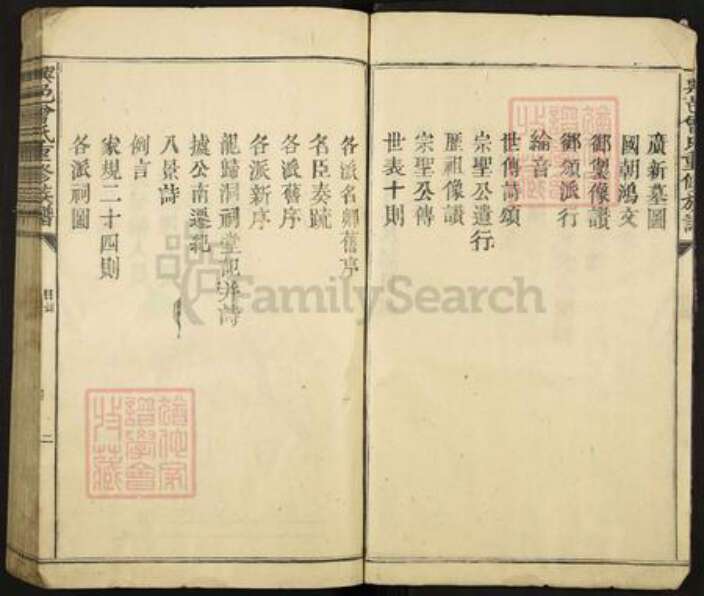 廣新墓圖
國朝鴻文
御製像讚
御頒派行
綸音
世傳詩頌
宗聖公遺行
歷祖像讚
宗聖公傳
世表十則
各派名卿舊序
名臣奏疏
各派舊序
各派新序
龍歸洞祠堂記并詩
據公南遷記
八景詩
例言
家規二十四則
各派祠圖
曾氏重修族譜
二
FamilySearch
譜學會
特藏